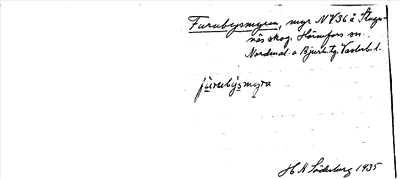 Furubysmyran, myr N V36 å Stags-
näs skog. Hörnefors sn.
Nordmal. o Bjurh. tg. Västerb. l.
furubýsmyra
H A Söderberg 1935